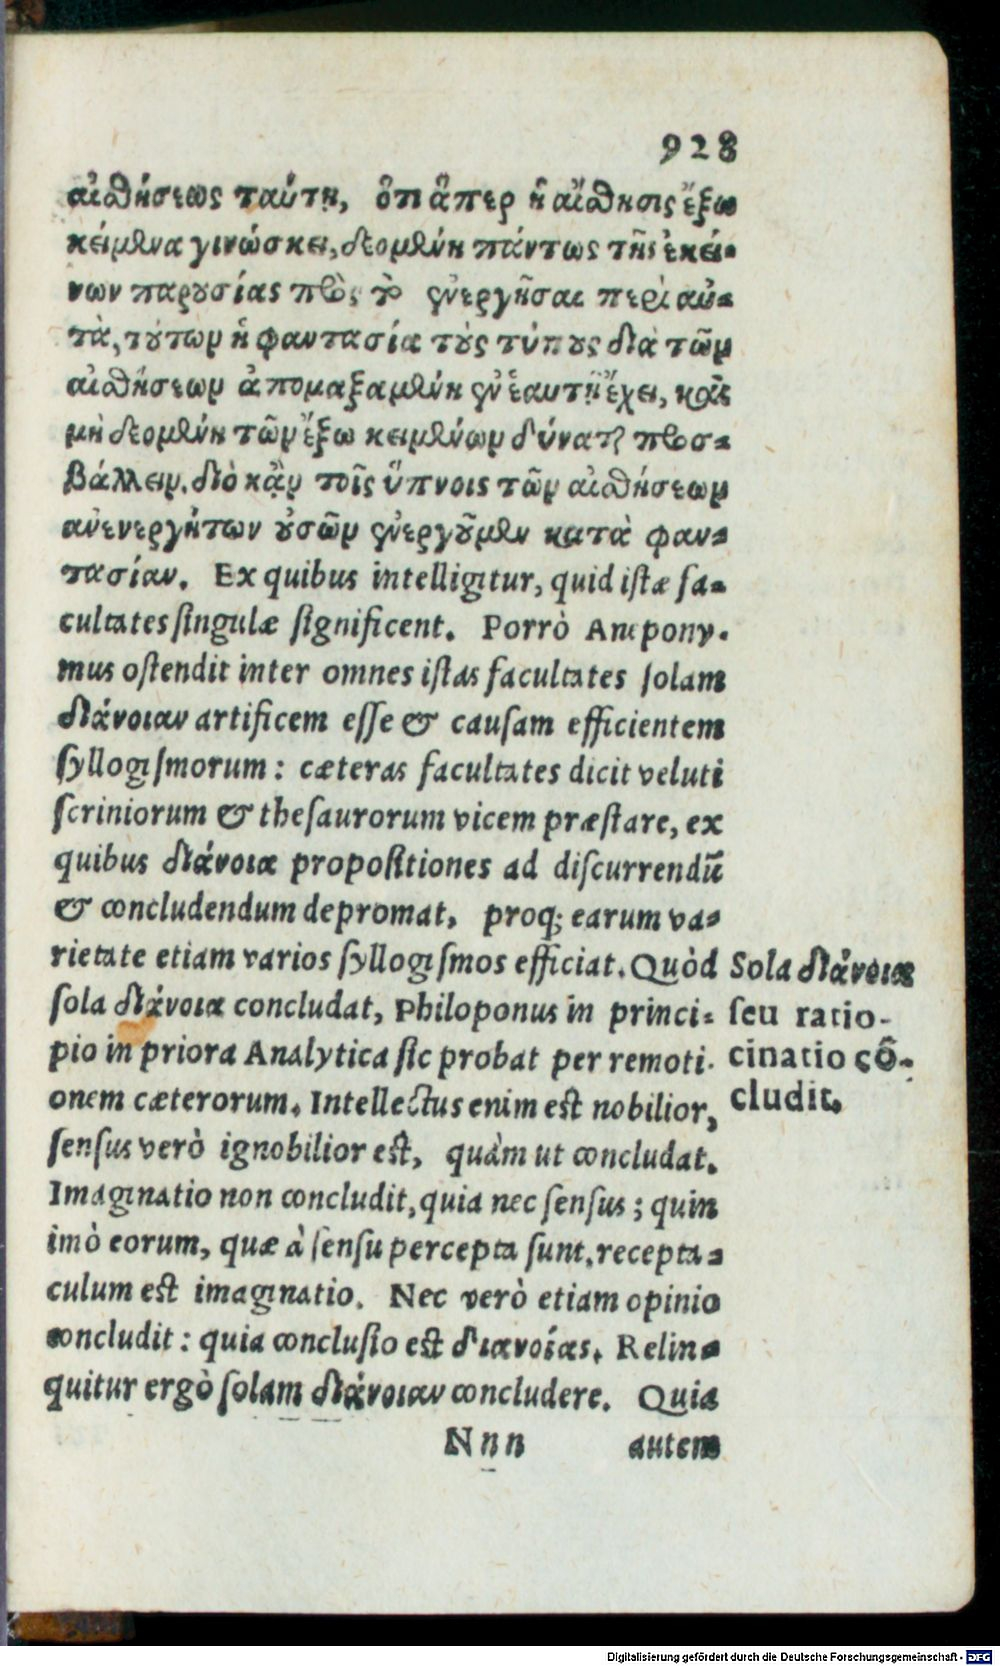 928
αἰσθήσεως ταύτῃ, ὅτι ἅπερ ἡ αἴσθησις ἔξω
κείμενα γινώσκει, δεομένη πάντως τῆς ἐκεί-
νων παρουσίας πρὸς τὸ ἐνεργῆσαι περὶ αὐ-
τὰ, τούτων ἡ φαντασία τοὺς τύπους διὰ τῶν
αἰσθήσεων ἀπομαξαμένη ἐν ἑαυτῇ ἔχει, καὶ
μὴ δεομένη τῶν ἔξω κειμένων δύναται προσ-
βάλλειν. διὸ κἂν τοῖς ὕπνοις τῶν αἰσθήσεων
ἀνενεργήτων οὐσῶν ἐνεργοῦμεν κατὰ φαν-
τασίαν. Ex quibus intelligitur, quid istæ fa-
cultates singulæ significent. Porrò Ampony-
mus ostendit inter omnes istas facultates solam
διάνοιαν artificem esse & causam efficientem
syllogismorum: cæteras facultates dicit veluti
scriniorum & thesaurorum vicem præstare, ex
quibus διάνοια propositiones ad discurrendū
& concludendum depromat, proq; earum va-
rietate etiam varios syllogismos efficiat. Quòd
sola διάνοια concludat, Philoponus in princi-
pio in priora Analytica sic probat per remoti-
onem cæterorum. Intellectus enim est nobilior,
sensus verò ignobilior est, quàm ut concludat.
Imaginatio non concludit, quia nec sensus; quin
imò eorum, quæ à sensu percepta sunt, recepta-
culum est imaginatio. Nec verò etiam opinio
concludit: quia conclusio est διανοίας. Relin-
quitur ergò solam διάνοιαν concludere. Quia
Nnn autem
Sola διάνοια
seu ratio-
cinatio cō-
cludit.
Digitalisierung gefördert durch die Deutsche Forschungsgemeinschaft - DFG